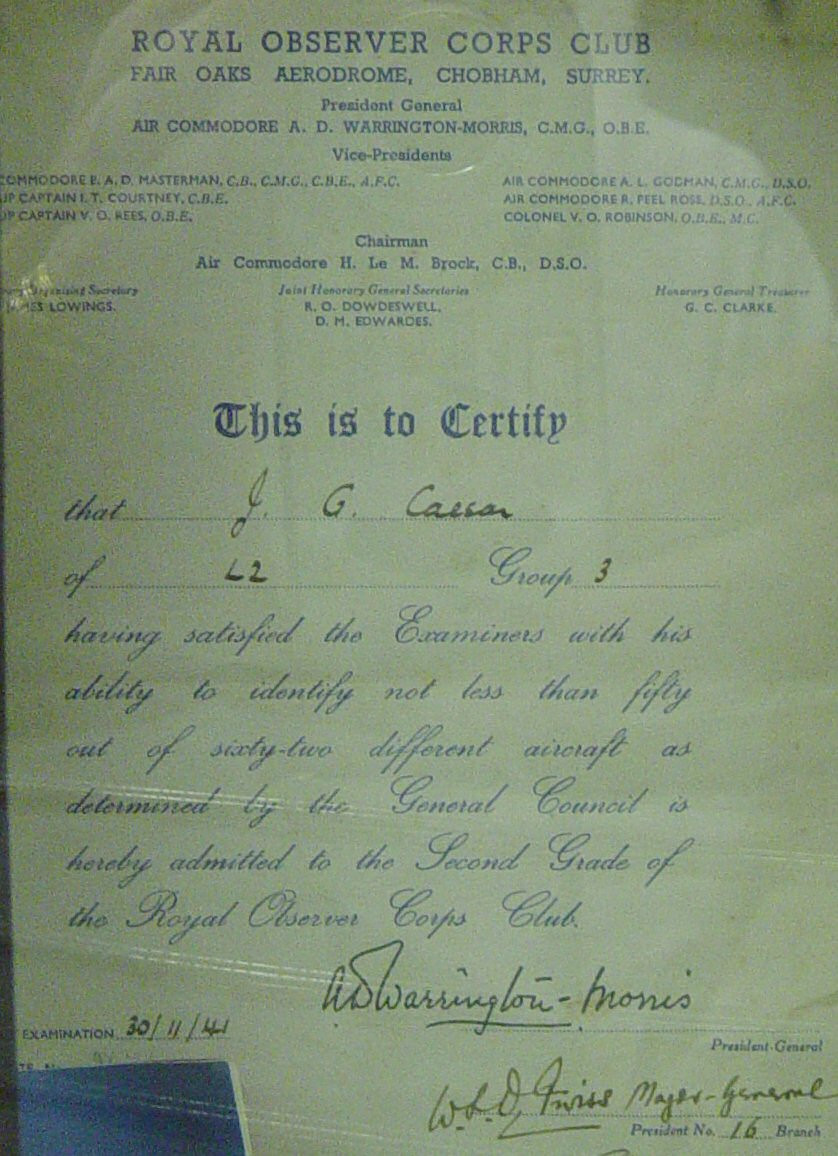 ROYAL OBSERVER CORPS CLUB
FAIR OAKS AERODROME, CHOBHAM, SURREY.
President General
AIR COMMODORE A. D. WARRINGTON-MORRIS, C.M.G., O.B.E.
Vice-Presidents
COMMODORE E. A. D. MASTERMAN, C.B., C.M.G., C.B.E., A.F.C.
UP CAPTAIN I. T. COURTNEY, C.B.E.
UP CAPTAIN V. O. REES, O.B.E.
AIR COMMODORE A. L. GODMAN, C.M.G., D.S.O.
AIR COMMODORE R. PEEL ROSS, D.S.O., A.F.C.
COLONEL V. O. ROBINSON, O.B.E., M.C.
Chairman
Air Commodore H. Le M. Brock, C.B., D.S.O.
Organising Secretary
LOWINGS.
Joint Honorary General Secretaries
R. O. DOWDESWELL.
D. M. EDWARDES.
Honorary General Treasurer
G. C. CLARKE.
This is to Certify
that J. G. Caesar
of L2 Group 3
having satisfied the Examiners with his
ability to identify not less than fifty
out of sixty-two different aircraft as
determined by the General Council is
hereby admitted to the Second Grade of
the Royal Observer Corps Club.
A D Warrington-Morris
EXAMINATION 30/11/41
President-General
W. L. O. Twiss Major-General
President No. 16 Branch